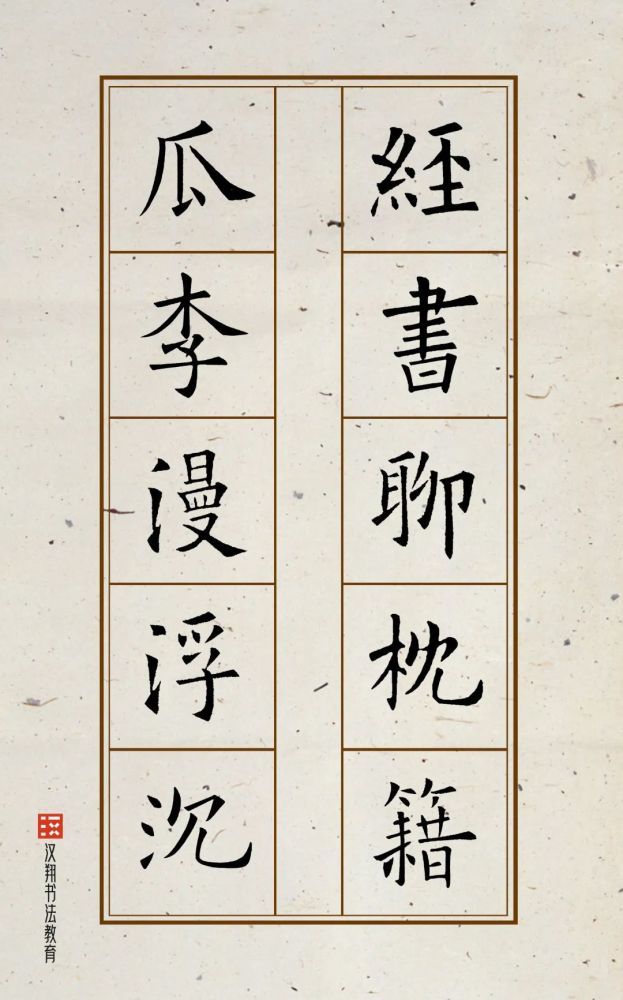 經書聊枕籍
瓜李漫浮沉
汉翔书法教育